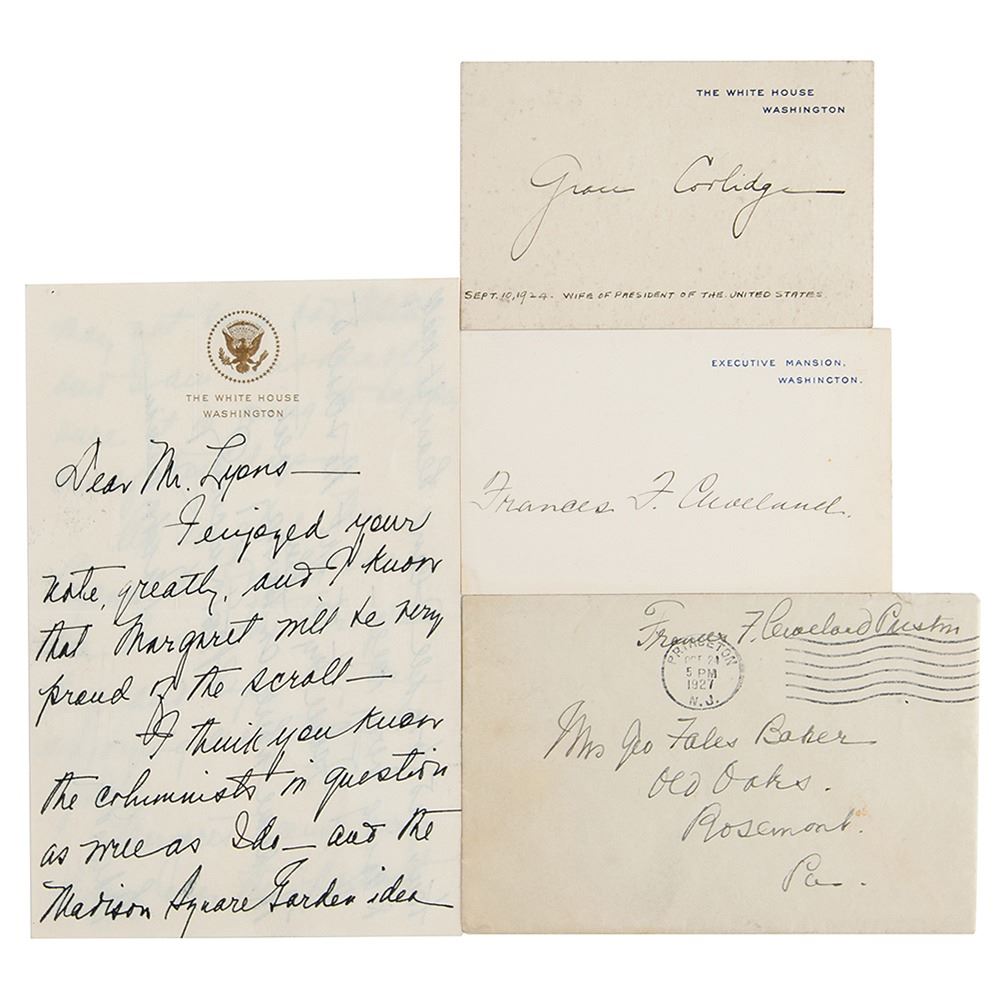 THE WHITE HOUSE
WASHINGTON
Dear Mr. Lyons—
I enjoyed your
note, greatly, and I know
that Margaret will be very
proud of the scroll—
I think you know
the columnists in question
as well as I do— and the
Madison Square Garden idea
THE WHITE HOUSE
WASHINGTON
Grace Coolidge
SEPT. 10, 1924. WIFE OF PRESIDENT OF THE UNITED STATES
EXECUTIVE MANSION,
WASHINGTON.
Frances F. Cleveland.
Frances F. Cleveland Preston
PRINCETON
OCT 21
5 PM
1927
N.J.
Mrs Geo Fales Baker
Old Oaks.
Rosemont.
Pa.